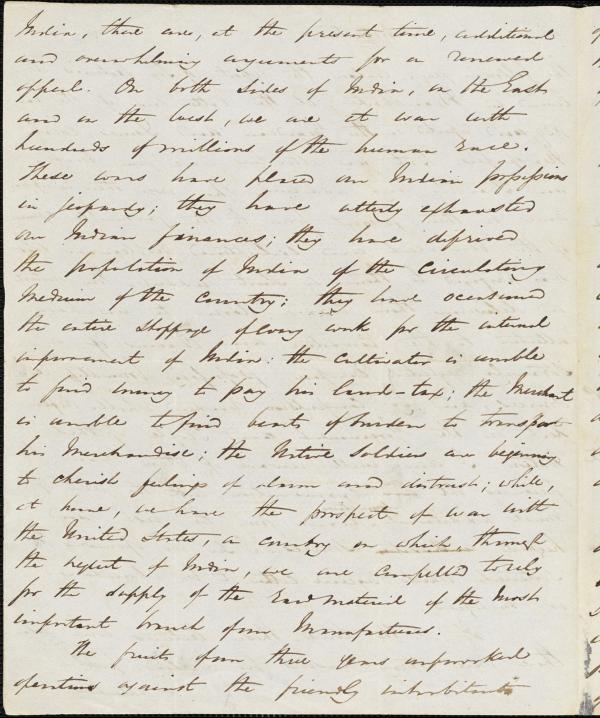 India, there are, at the present time, additional
and overwhelming arguments for a renewed
appeal. On both sides of India, in the East
and in the West, we are at war with
hundreds of millions of the human race.
These wars have placed our Indian possessions
in jeopardy; they have utterly exhausted
our Indian finances; they have deprived
the population of India of the circulating
medium of the country; they have occasioned
the entire stoppage of every work for the internal
improvement of India: the cultivator is unable
to find money to pay his land-tax; the Merchant
is unable to find beasts of burden to transport
his Merchandise; the Native Soldiers are beginning
to cherish feelings of alarm and distrust; while,
at home, we have the prospect of war with
the United States, a country on which, through
the neglect of India, we are compelled to rely
for the supply of the Raw Material of the most
important branch of our Manufactures.
The fruits of our three years unprovoked
operations against the friendly inhabitants